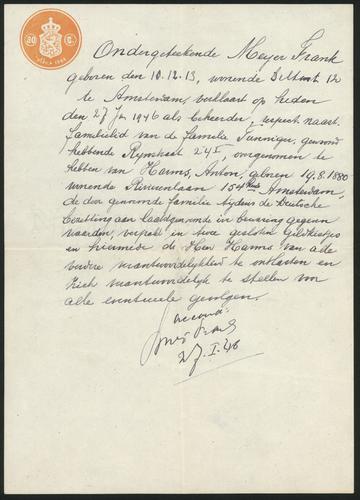 30 C.
Ondergeteekende Meyer Frank
geboren den 10.12.13, wonende 12
te Amsterdam, verklaart op heden
den 27 Jan 1946 als beheerder, respect. naast
familielid van de familie gewoond
hebbende Rynstraat 24 I, overgenomen te
hebben van Harms, Anton, geboren 19.8.1880
wonende Rivierenlaan 154 Amsterdam,
de door genoemde familie tijdens de Duitsche
bezetting aan laatstgenoemde in bewaring gegeven
waarden, verpakt in twee gesloten geldkistjes
en hiermede de Heer Harms van alle
verdere verantwoordelijkheid te ontlasten en
zich verantwoordelijk te stellen voor
alle eventueele gevolgen.
accoord:
Frank
27.I.46